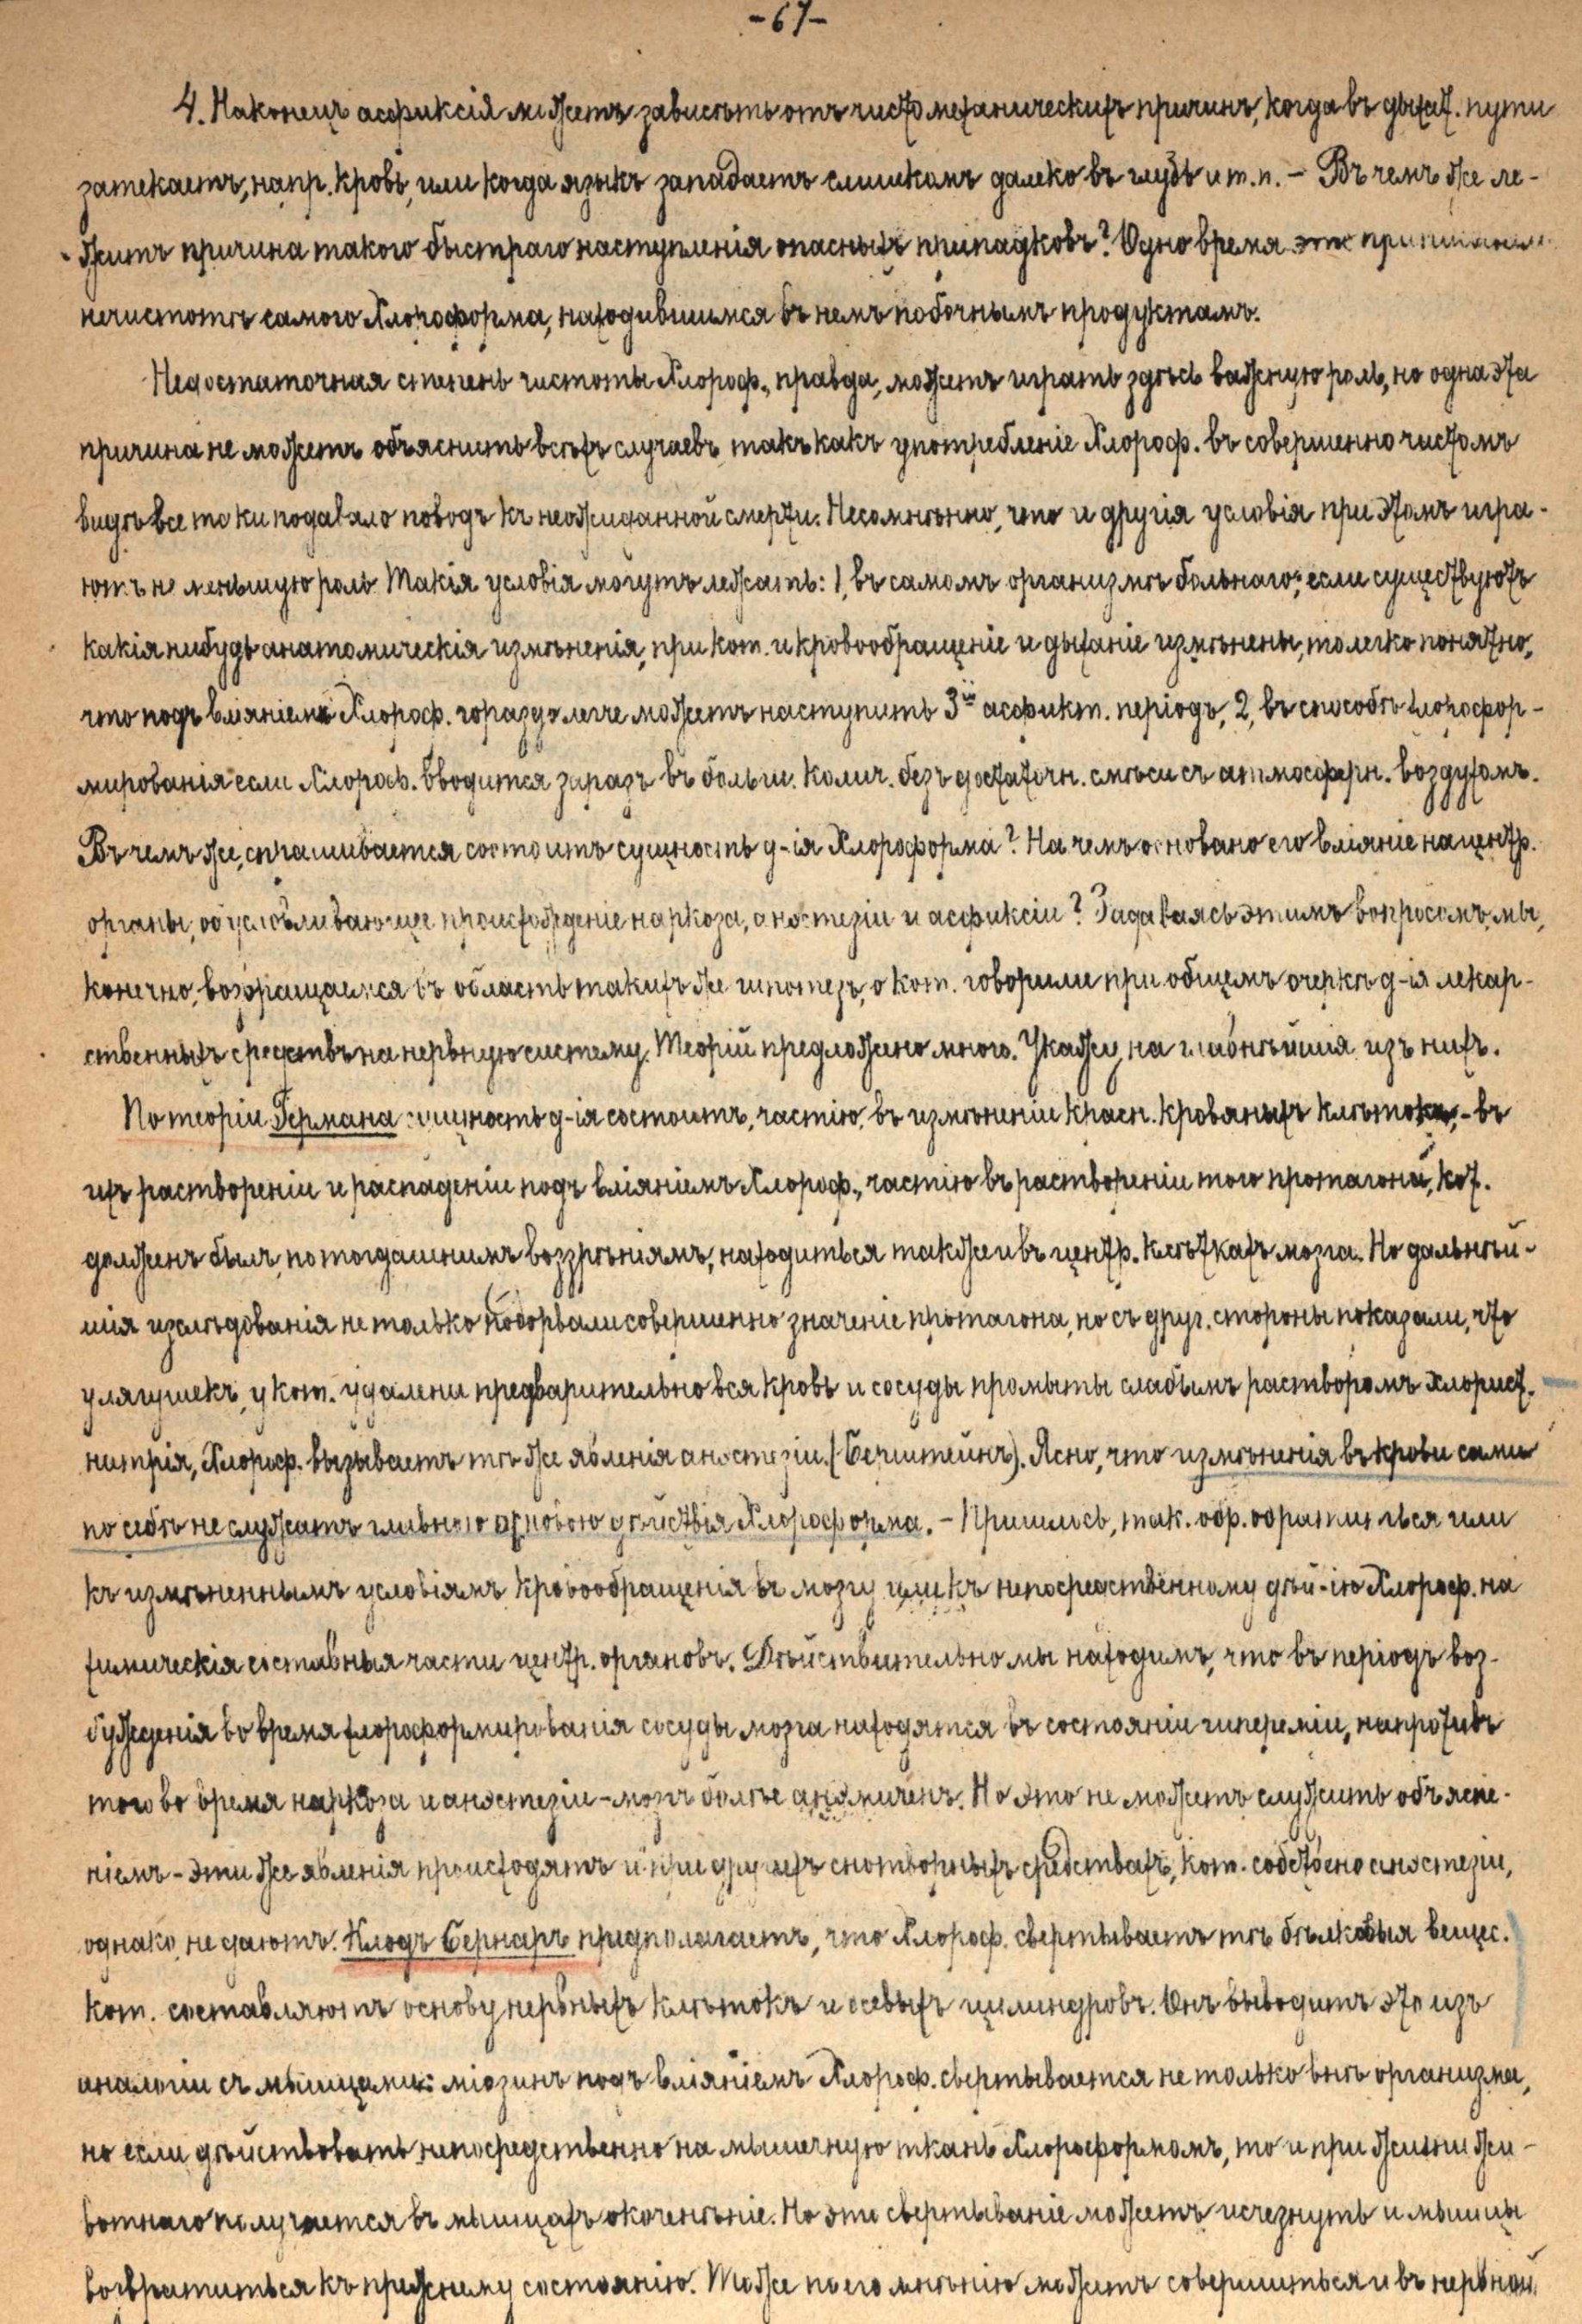 -67-
4. Наконецъ асфиксія можетъ зависѣть отъ чисто механическихъ причинъ, когда въ дыхат. пути
затекаетъ, напр. кровь, или когда языкъ западаетъ слишкомъ далеко въ глубь и т. п. - Въ чемъ же ле-
житъ причина такого быстраго наступленія опасныхъ припадковъ? Одно время это
нечистотѣ самого Хлороформа, находившимся въ немъ побочнымъ продуктамъ.
Недостаточная степень чистоты Хлороф., правда, можетъ играть здѣсь важную роль, но одна эта
причина не можетъ объяснить всѣхъ случаевъ такъ какъ употребленіе Хлороф. въ совершенно чистомъ
видѣ все таки подавало поводъ къ неожиданной смерти. Несомнѣнно, что и другія условія при этомъ игра-
ютъ не меньшую роль. Такія условія могутъ лежать: 1, въ самомъ организмѣ больнаго; если существуютъ
какія нибудь анатомическія измѣненія, при кот. и кровообращеніе и дыханіе измѣнены, то легко понятно,
что подъ вліяніемъ Хлороф. гораздо легче можетъ наступить 3й асфикт. періодъ, 2, въ способѣ хлорофор-
мированія если Хлороф. вводится заразъ въ больш. колич. безъ достаточн. смѣси съ атмосферн. воздухомъ.
Въ чемъ же, спрашивается состоитъ сущность д-ія Хлороформа? На чемъ основано его вліяніе на центр.
органы, обусловливающее происхожденіе наркоза, анэстезіи и асфиксіи? Задаваясь этимъ вопросомъ, мы,
конечно, возвращаемся въ область такихъ же гипотезъ, о кот. говорили при общемъ очеркѣ д-ія лекар-
ственныхъ средствъ на нервную систему. Теорій предложено много. Укажу на главнѣйшія изъ нихъ.
По теоріи Германа сущность д-ія состоитъ, частію, въ измѣненіи красн. кровяныхъ клѣтокъ, - въ
ихъ раствореніи и распаденіе подъ вліяніемъ Хлороф., частію въ раствореніи того протагона, кот.
долженъ былъ, по тогдашнимъ воззрѣніямъ, находиться также и въ центр. клѣткахъ мозга. Но дальнѣй-
шія изслѣдованія не только подорвали совершенно значеніе протагона, но съ друг. стороны показали, что
у лягушекъ, у кот. удалени предварительно вся кровь и сосуды промыты слабымъ растворомъ хлорист.
натрія, Хлороф. вызываетъ тѣ же явленія анэстезіи. (Бернштейнъ). Ясно, что измѣненія въ крови сами
по себѣ не служатъ главною основою дѣйствія Хлороформа. - Пришлось, так. обр. обратиться или
къ измѣненнымъ условіямъ кровообращенія въ мозгу или къ непосредственному дѣй-ію Хлороф. на
химическія составныя части центр. органовъ. Дѣйствительно мы находимъ, что въ періодъ воз-
бужденія во время хлороформированія сосуды мозга находятся въ состояніи гипереміи, напротивъ
того во время наркоза и анэстезіи - мозгъ болѣе анэмиченъ. Но это не можетъ служить объясне-
ніемъ - эти же явленія происходятъ и при другихъ снотворныхъ средствахъ, кот. собствено анэстезіи,
однако, не даютъ. Клодъ Бернаръ предполагаетъ, что Хлороф. свертываетъ тѣ бѣлковыя вещес.
кот. составляютъ основу нервныхъ клѣтокъ и осевыхъ цилиндровъ. Онъ выводитъ это изъ
аналогіи съ мышцами: міозинъ подъ вліяніемъ Хлороф. свертывается не только внѣ организма,
но если дѣйствовать непосредственно на мышечную ткань Хлороформомъ, то и при жизни жи-
вотнаго получается въ мышцахъ окоченѣніе. Но это свертываніе можетъ исчезнуть и мышцы
возвратиться къ прежнему состоянію. Тоже по его мнѣнію можетъ совершиться и въ нервной